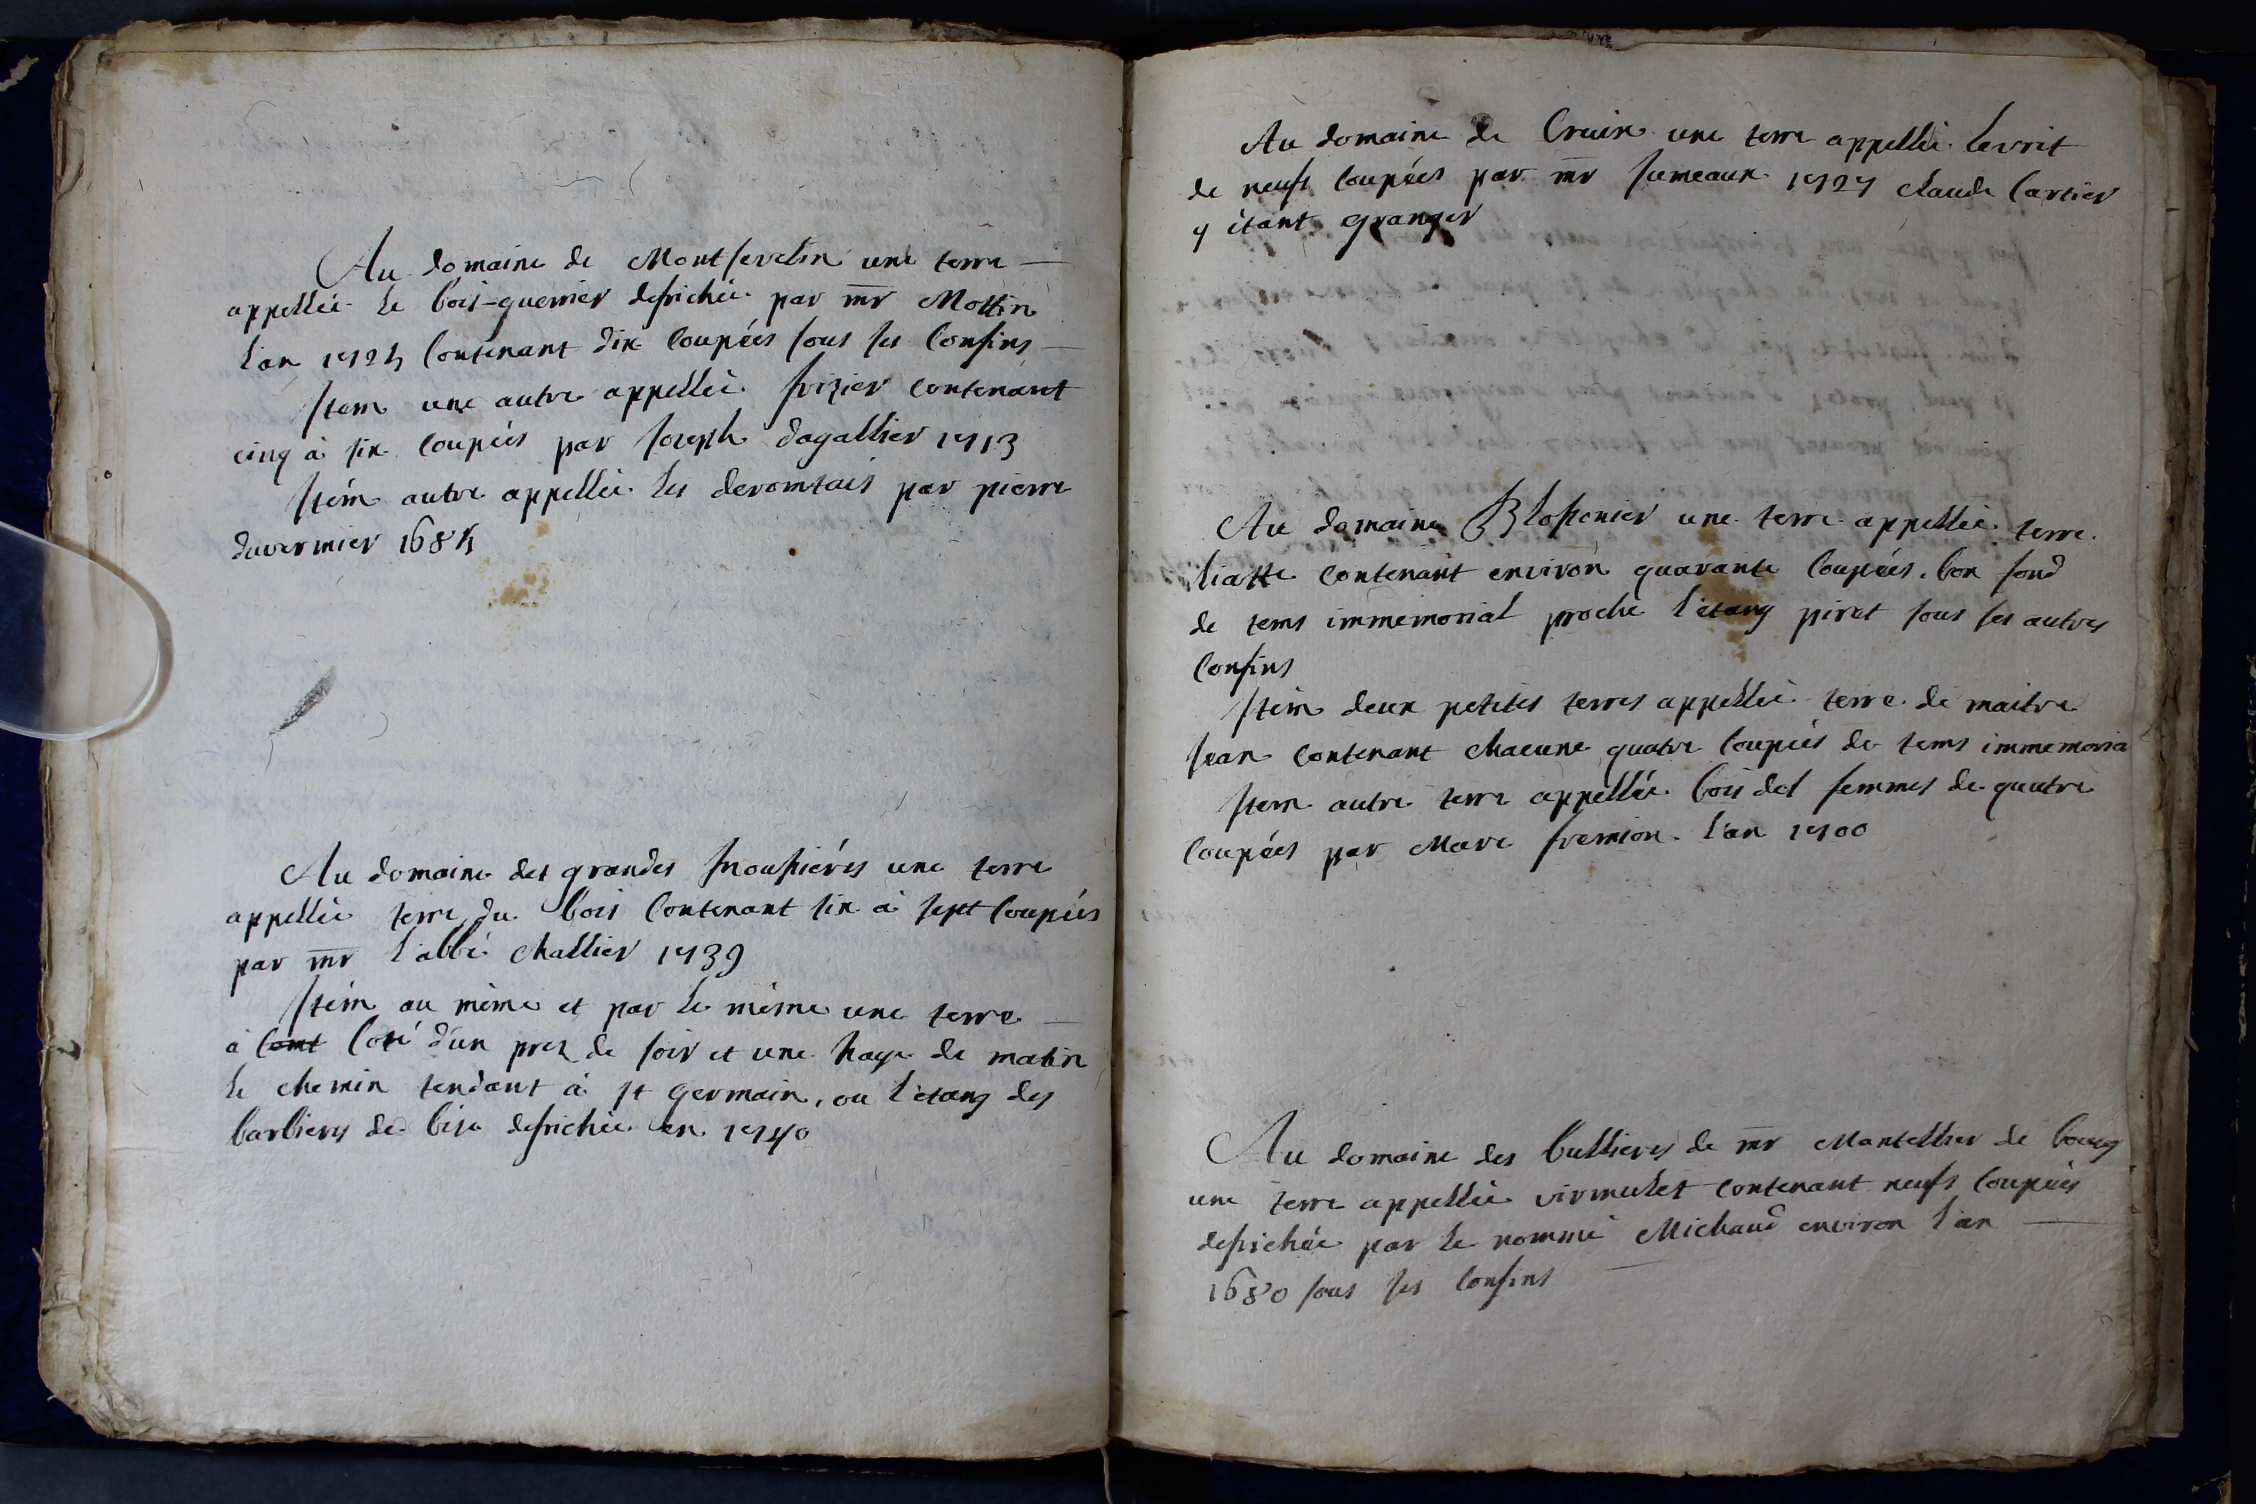 Au domaine de Montsevelin une terre
appellée le bois-guerrier defrichée par mr Mottin
l'an 1724 Contenant dix Coupées sous ses Confins
Item une autre appellée frizier contenant
cinq à six Coupées par Joseph dagallier 1713
Item autre appellée les devomtais par pierre
duvernier 1684
Au domaine des grandes une terre
appellée terre du bois Contenant six à sept Coupées
par mr l'abbé Challier 1739
Item au même et par le même une terre
à Coté d'un prez de soir et une haye de matin
le chemin tendant à st germain, ou l'étang des
barbiers de bise defrichée en 1740
Au domaine de Cruix une terre appellée Levrit
de neufs Coupées par mr Jumeaux 1727 Claude Cartier
y étant granger
Au domaine une terre appellée terre
liatte Contenant environ quarante Coupées, bon fond
de tems immémorial proche l'étang piret sous ses autres
Confins
Item deux petites terres appellée terre de maitre
Jean Contenant chacune quatre Coupées de tems immemoria
Item autre terre appellée bois des femmes de quatre
Coupées par Marc fremion l'an 1700
Au domaine des bullieres de mr Mantellier de bourg
une terre appellée virmulet Contenant neufs Coupées
defrichée par le nommé Michaud environ l'an
1680 sous ses Confins